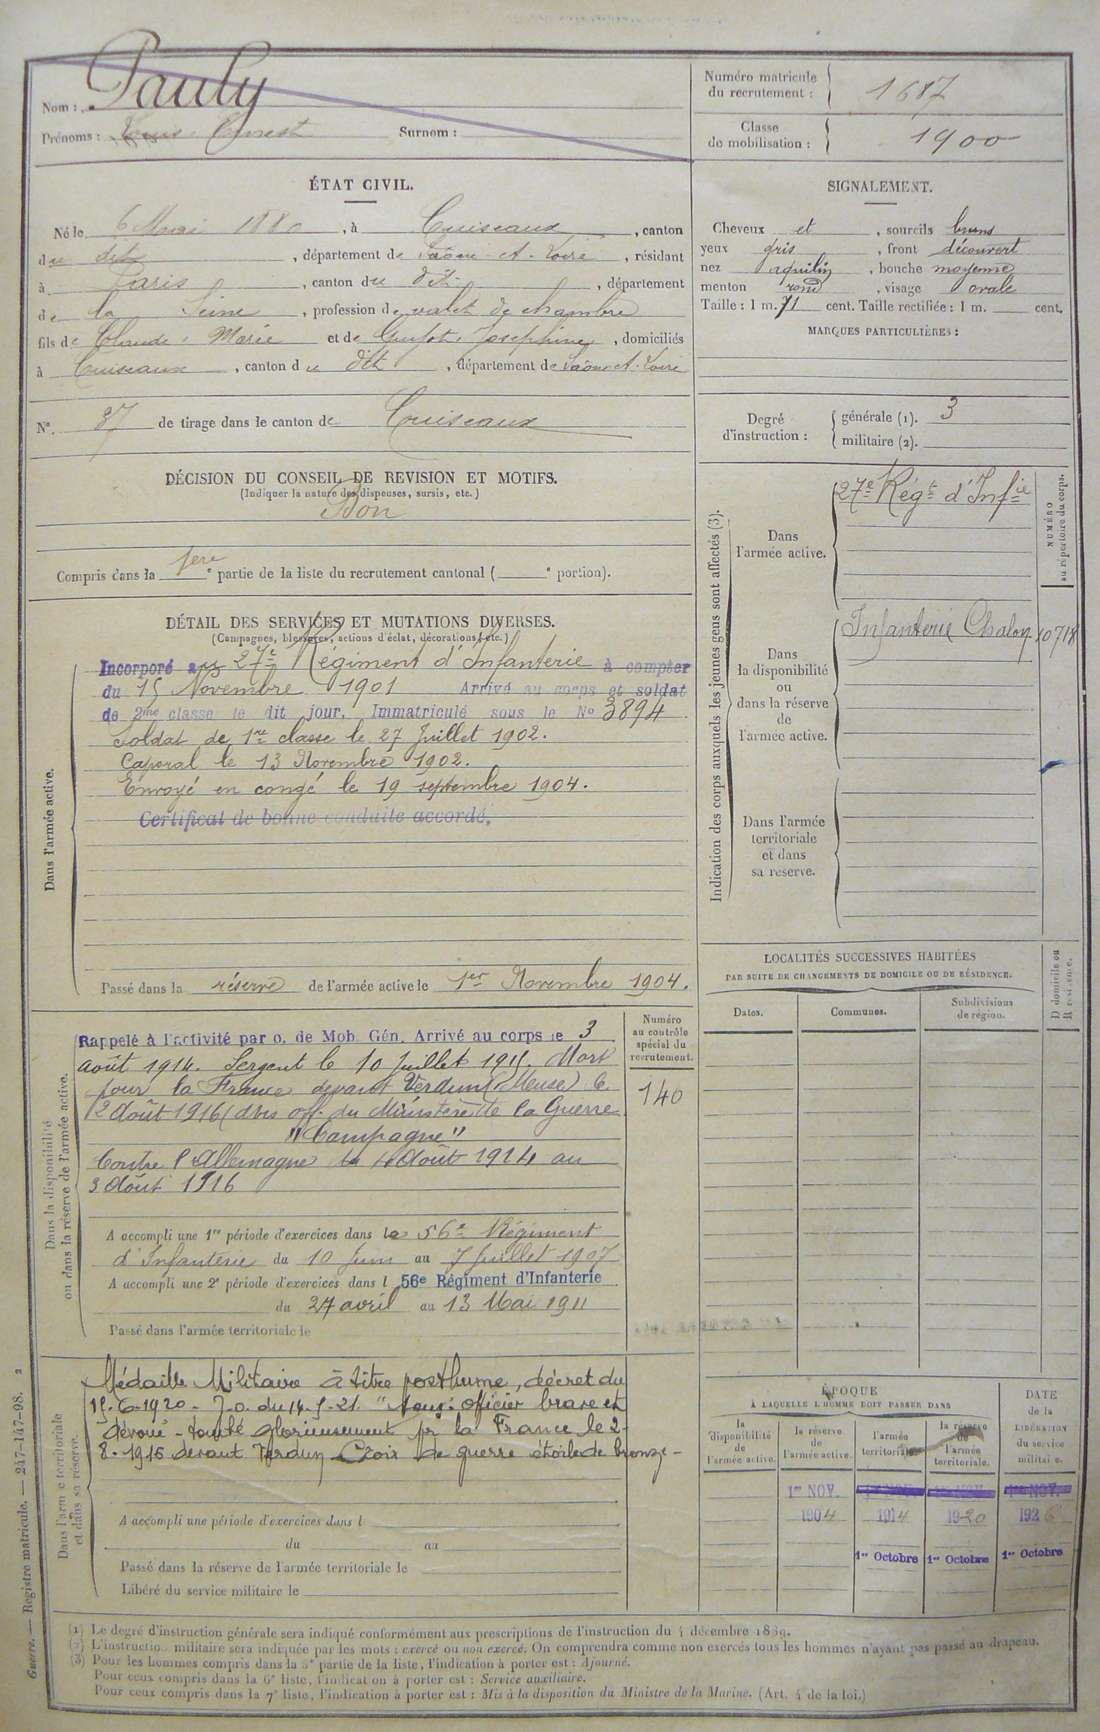 Nom : Pauly
Prénoms : Ernest Surnom :
Numéro matricule du recrutement : 1687
Classe de mobilisation : 1900
ÉTAT CIVIL.
Né le 6 Mai 1880, à Cuiseaux, canton
du dit, département de Saône-et-Loire, résidant
à Paris, canton du dit, département
de la Seine, profession de valet de chambre
fils de Claude Marie et de Guyot Joséphine, domiciliés
à Cuiseaux, canton du dit, département de Saône-et-Loire
N° 37 de tirage dans le canton de Cuiseaux
SIGNALEMENT.
Cheveux et , sourcils bruns
yeux gris , front découvert
nez aquilin , bouche moyenne
menton rond , visage ovale
Taille : 1 m. 71 cent. Taille rectifiée : 1 m. cent.
MARQUES PARTICULIÈRES :
Degré d'instruction : générale (1). 3
militaire (2).
DÉCISION DU CONSEIL DE REVISION ET MOTIFS.
(Indiquer la nature des dispenses, sursis, etc.)
Bon
Compris dans la 1ere e partie de la liste du recrutement cantonal ( e portion).
DÉTAIL DES SERVICES ET MUTATIONS DIVERSES.
(Campagnes, blessures, actions d'éclat, décorations, etc.)
Dans l'armée active.
Incorporé au 27e Régiment d'Infanterie à compter
du 15 Novembre 1901 Arrivé au corps et soldat
de 2me classe le dit jour. Immatriculé sous le No 3894
Soldat de 1re classe le 27 Juillet 1902.
Caporal le 13 Novembre 1902.
Envoyé en congé le 19 septembre 1904.
Certificat de bonne conduite accordé.
Passé dans la réserve de l'armée active le 1er Novembre 1904.
Indication des corps auxquels les jeunes gens sont affectés (3).
NUMÉRO au répertoire du corps.
Dans l'armée active.
27e Régt d'Infie
Dans la disponibilité ou dans la réserve de l'armée active.
Infanterie Chalon 10718
Dans l'armée territoriale et dans sa réserve.
LOCALITÉS SUCCESSIVES HABITÉES
PAR SUITE DE CHANGEMENTS DE DOMICILE OU DE RÉSIDENCE.
Dates. Communes. Subdivisions de région. D domicile ou R résidence.
Dans la disponibilité ou dans la réserve de l'armée active.
Numéro au contrôle spécial du recrutement.
140
Rappelé à l'activité par o. de Mob. Gén. Arrivé au corps le 3
août 1914. Sergent le 10 Juillet 1915. Mort
pour la France devant Verdun (Meuse) le
2 Août 1916 (avis off. du Ministère de la Guerre
"Campagne"
Contre l'Allemagne du 4 Août 1914 au
3 Août 1916
A accompli une 1re période d'exercices dans le 56e Régiment
d'Infanterie du 10 Juin au 7 Juillet 1907
A accompli une 2e période d'exercices dans l 56e Régiment d'Infanterie
du 27 avril au 13 Mai 1911
Passé dans l'armée territoriale le
Dans l'armée territoriale et dans sa réserve.
Médaille Militaire à titre posthume, décret du
15-6-1920 - J.o. du 14-5-21. "Sous-officier brave et
dévoué - tombé glorieusement pr la France le 2-
8-1916 devant Verdun. Croix de guerre étoile de bronze -
A accompli une période d'exercices dans l
du au
Passé dans la réserve de l'armée territoriale le
Libéré du service militaire le
ÉPOQUE
À LAQUELLE L'HOMME DOIT PASSER DANS
DATE de la LIBÉRATION du service militaire.
la disponibilité de l'armée active. la réserve de l'armée active. l'armée territoriale. la réserve de l'armée territoriale.
1er NOV. 1er NOV. 1er NOV. 1er NOV.
1904 1914 1920 1926
1er Octobre 1er Octobre 1er Octobre
(1) Le degré d'instruction générale sera indiqué conformément aux prescriptions de l'instruction du 4 décembre 1889.
(2) L'instruction militaire sera indiquée par les mots : exercé ou non exercé. On comprendra comme non exercés tous les hommes n'ayant pas passé au drapeau.
(3) Pour les hommes compris dans la 5e partie de la liste, l'indication à porter est : Ajourné.
Pour ceux compris dans la 6e liste, l'indication à porter est : Service auxiliaire.
Pour ceux compris dans la 7e liste, l'indication à porter est : Mis à la disposition du Ministre de la Marine. (Art. 4 de la loi.)
Guerre. — Registre matricule. — 247-147-98. 2